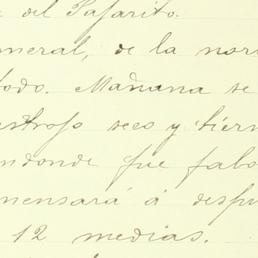 e del Pajarito.
neral, de la nor
odo. Mañana se
astrojo seco y tier
ndonde fue fabo
mensará á despu
12 medias.